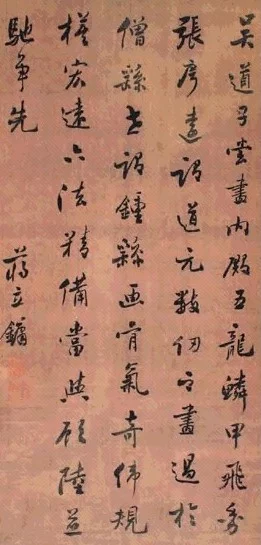 吳道子嘗畫內殿五龍鱗甲飛動
張彥遠謂道元數仞之畫過於
僧繇謂鍾繇画骨氣奇偉規
模宏遠六法精備當與顧陸並
馳爭先
蔣立鏞